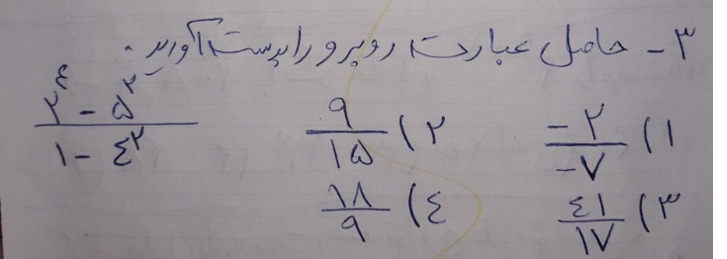 ۳- حاصل عبارت روبرو را بدست آورید.
(۲^٤ - ۵^۲) / (۱ - ٤^۲)
۱) -۲/-۷ ۲) ۹/۱۵
۳) ٤۱/۱۷ ٤) ۱۸/۹